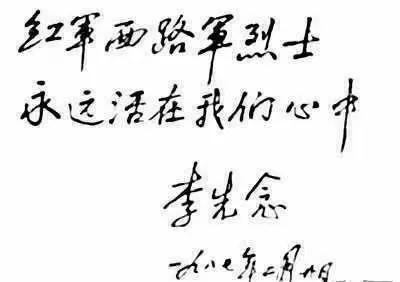 红軍西路軍烈士
永远活在我们心中
李先念
一九八七年二月廿日